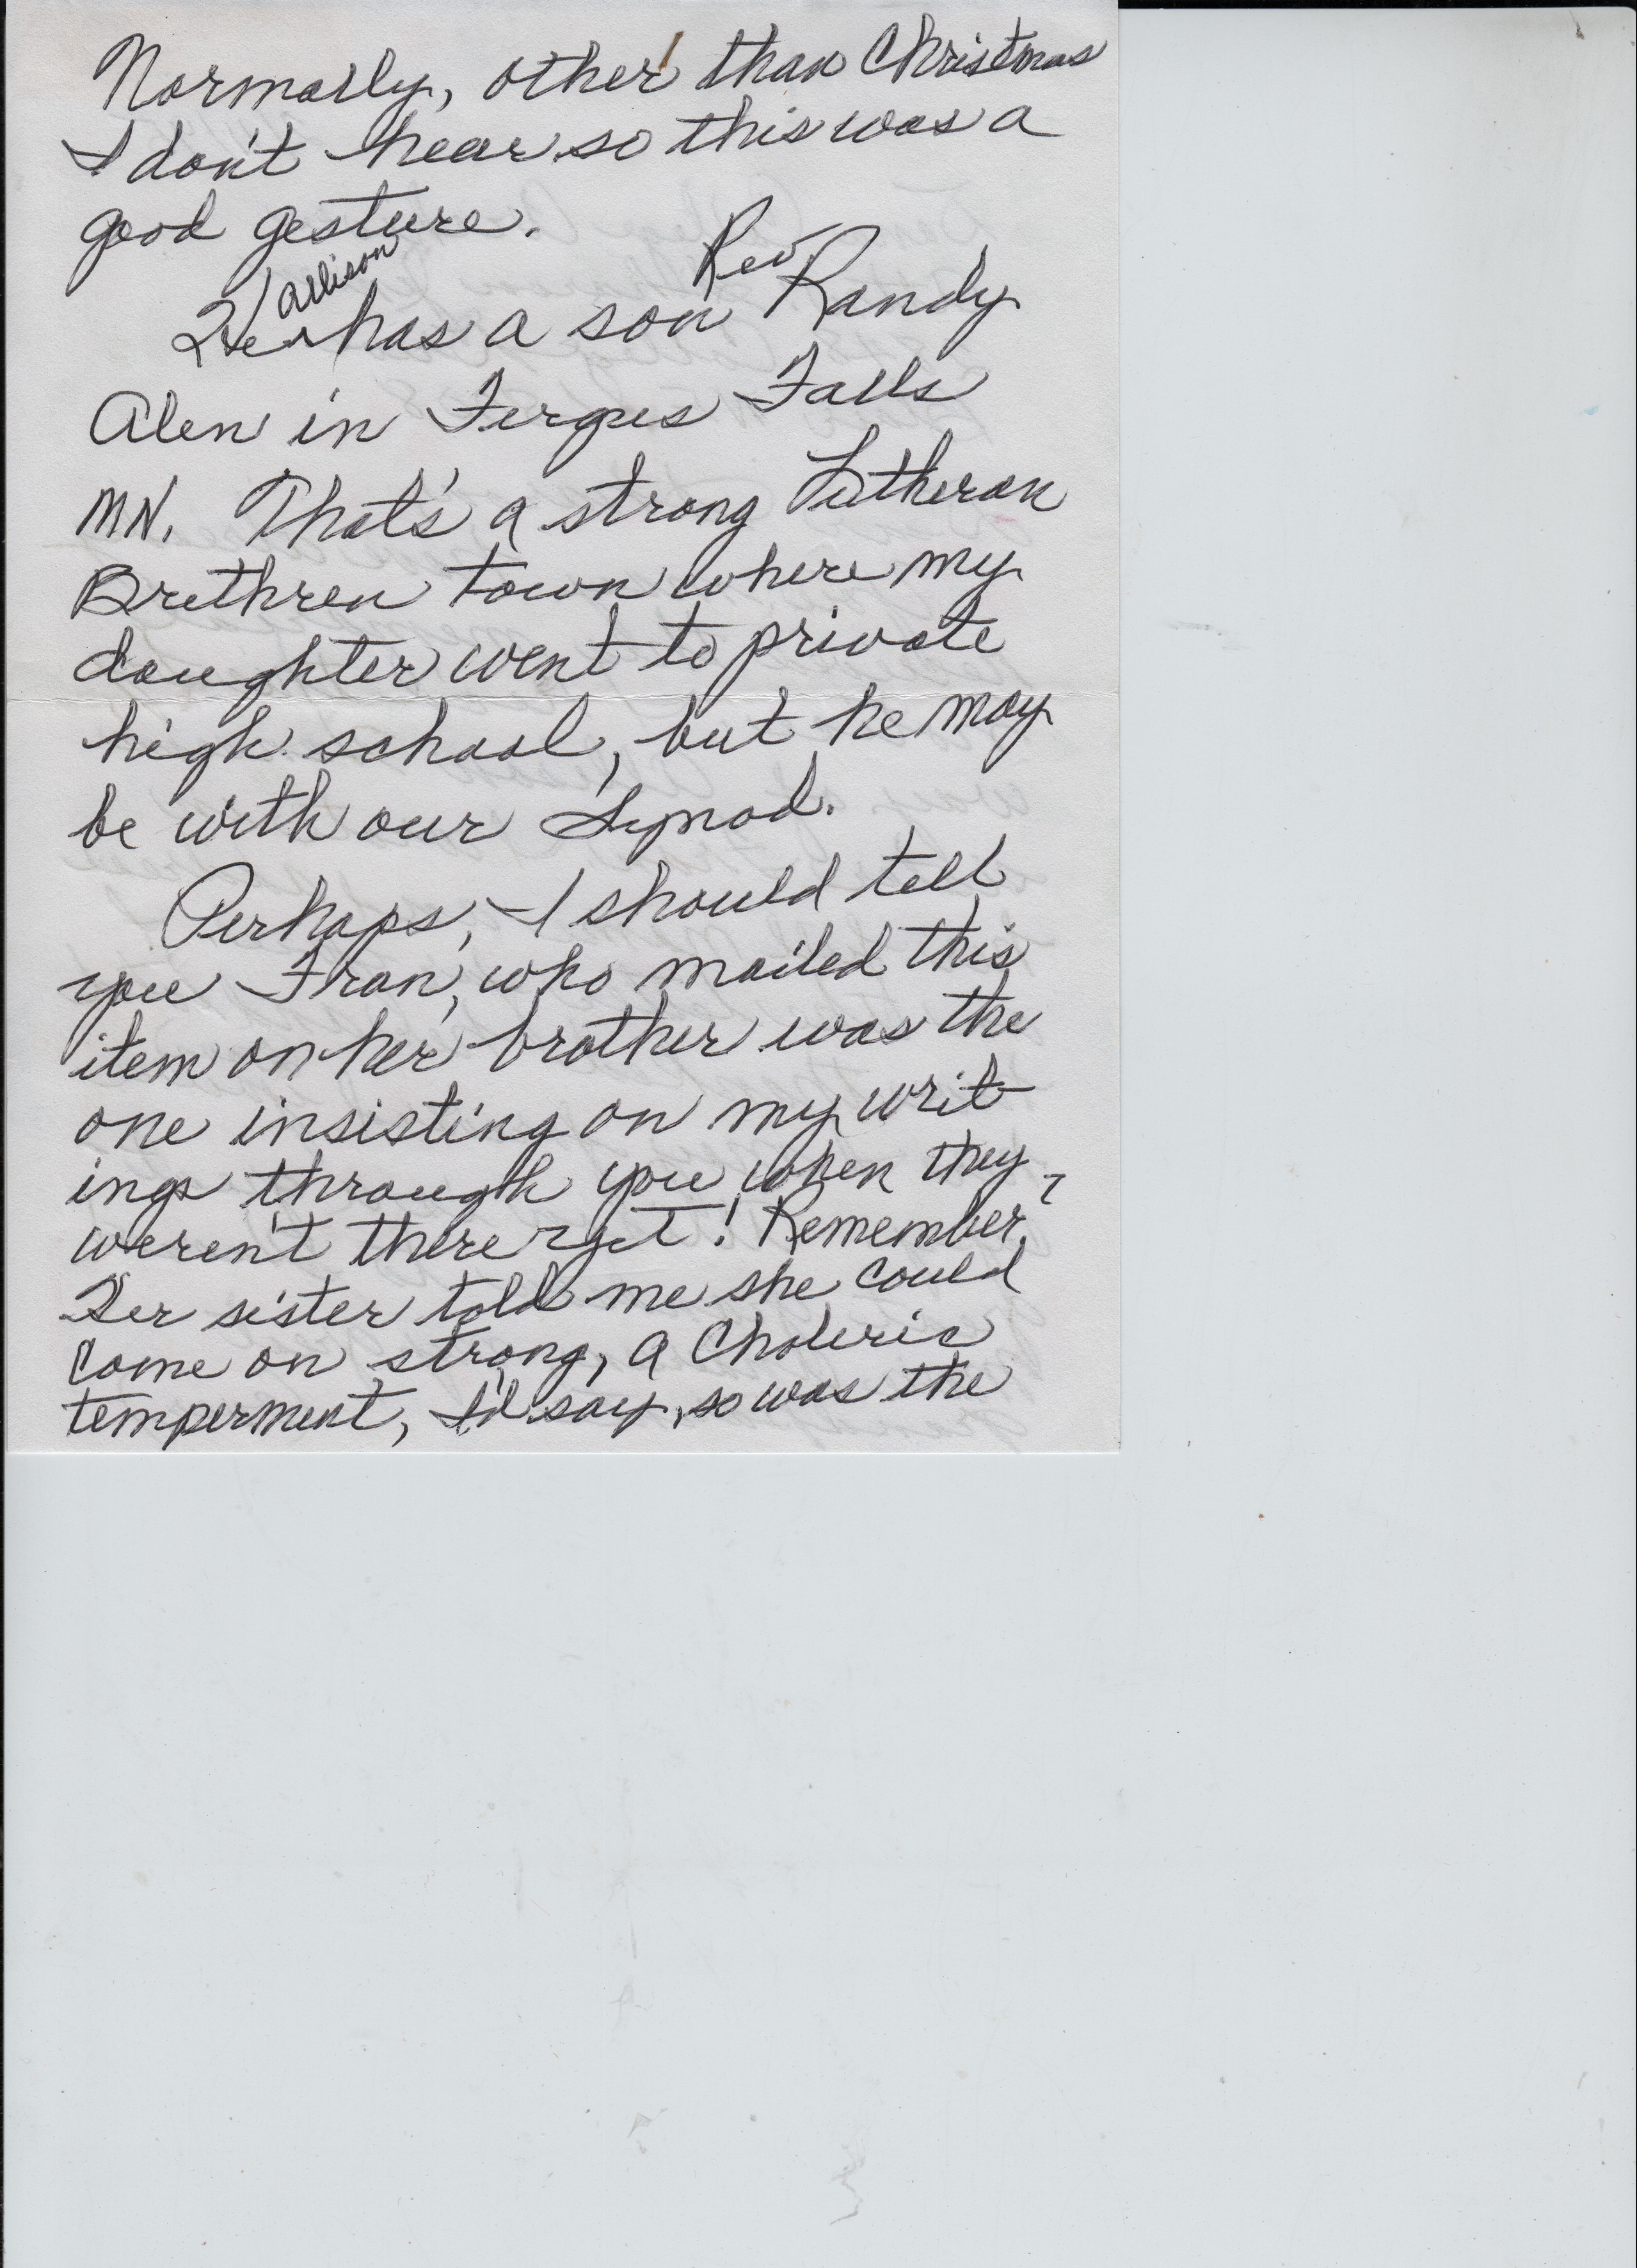 Normally, other than Christmas
I don't hear so this was a
good gesture.
Allison Rev
He ^ has a son Randy
Alen in Fergus Falls
MN. That's a strong Lutheran
Brethren town where my
daughter went to private
high school, but he may
be with our Synod.
Perhaps, I should tell
you Fran, who mailed this
item on her brother was the
one insisting on my writ-
ings through you when they
weren't there yet! Remember?
Her sister told me she could
come on strong, a Choleric
temperment, I'd say, so was the